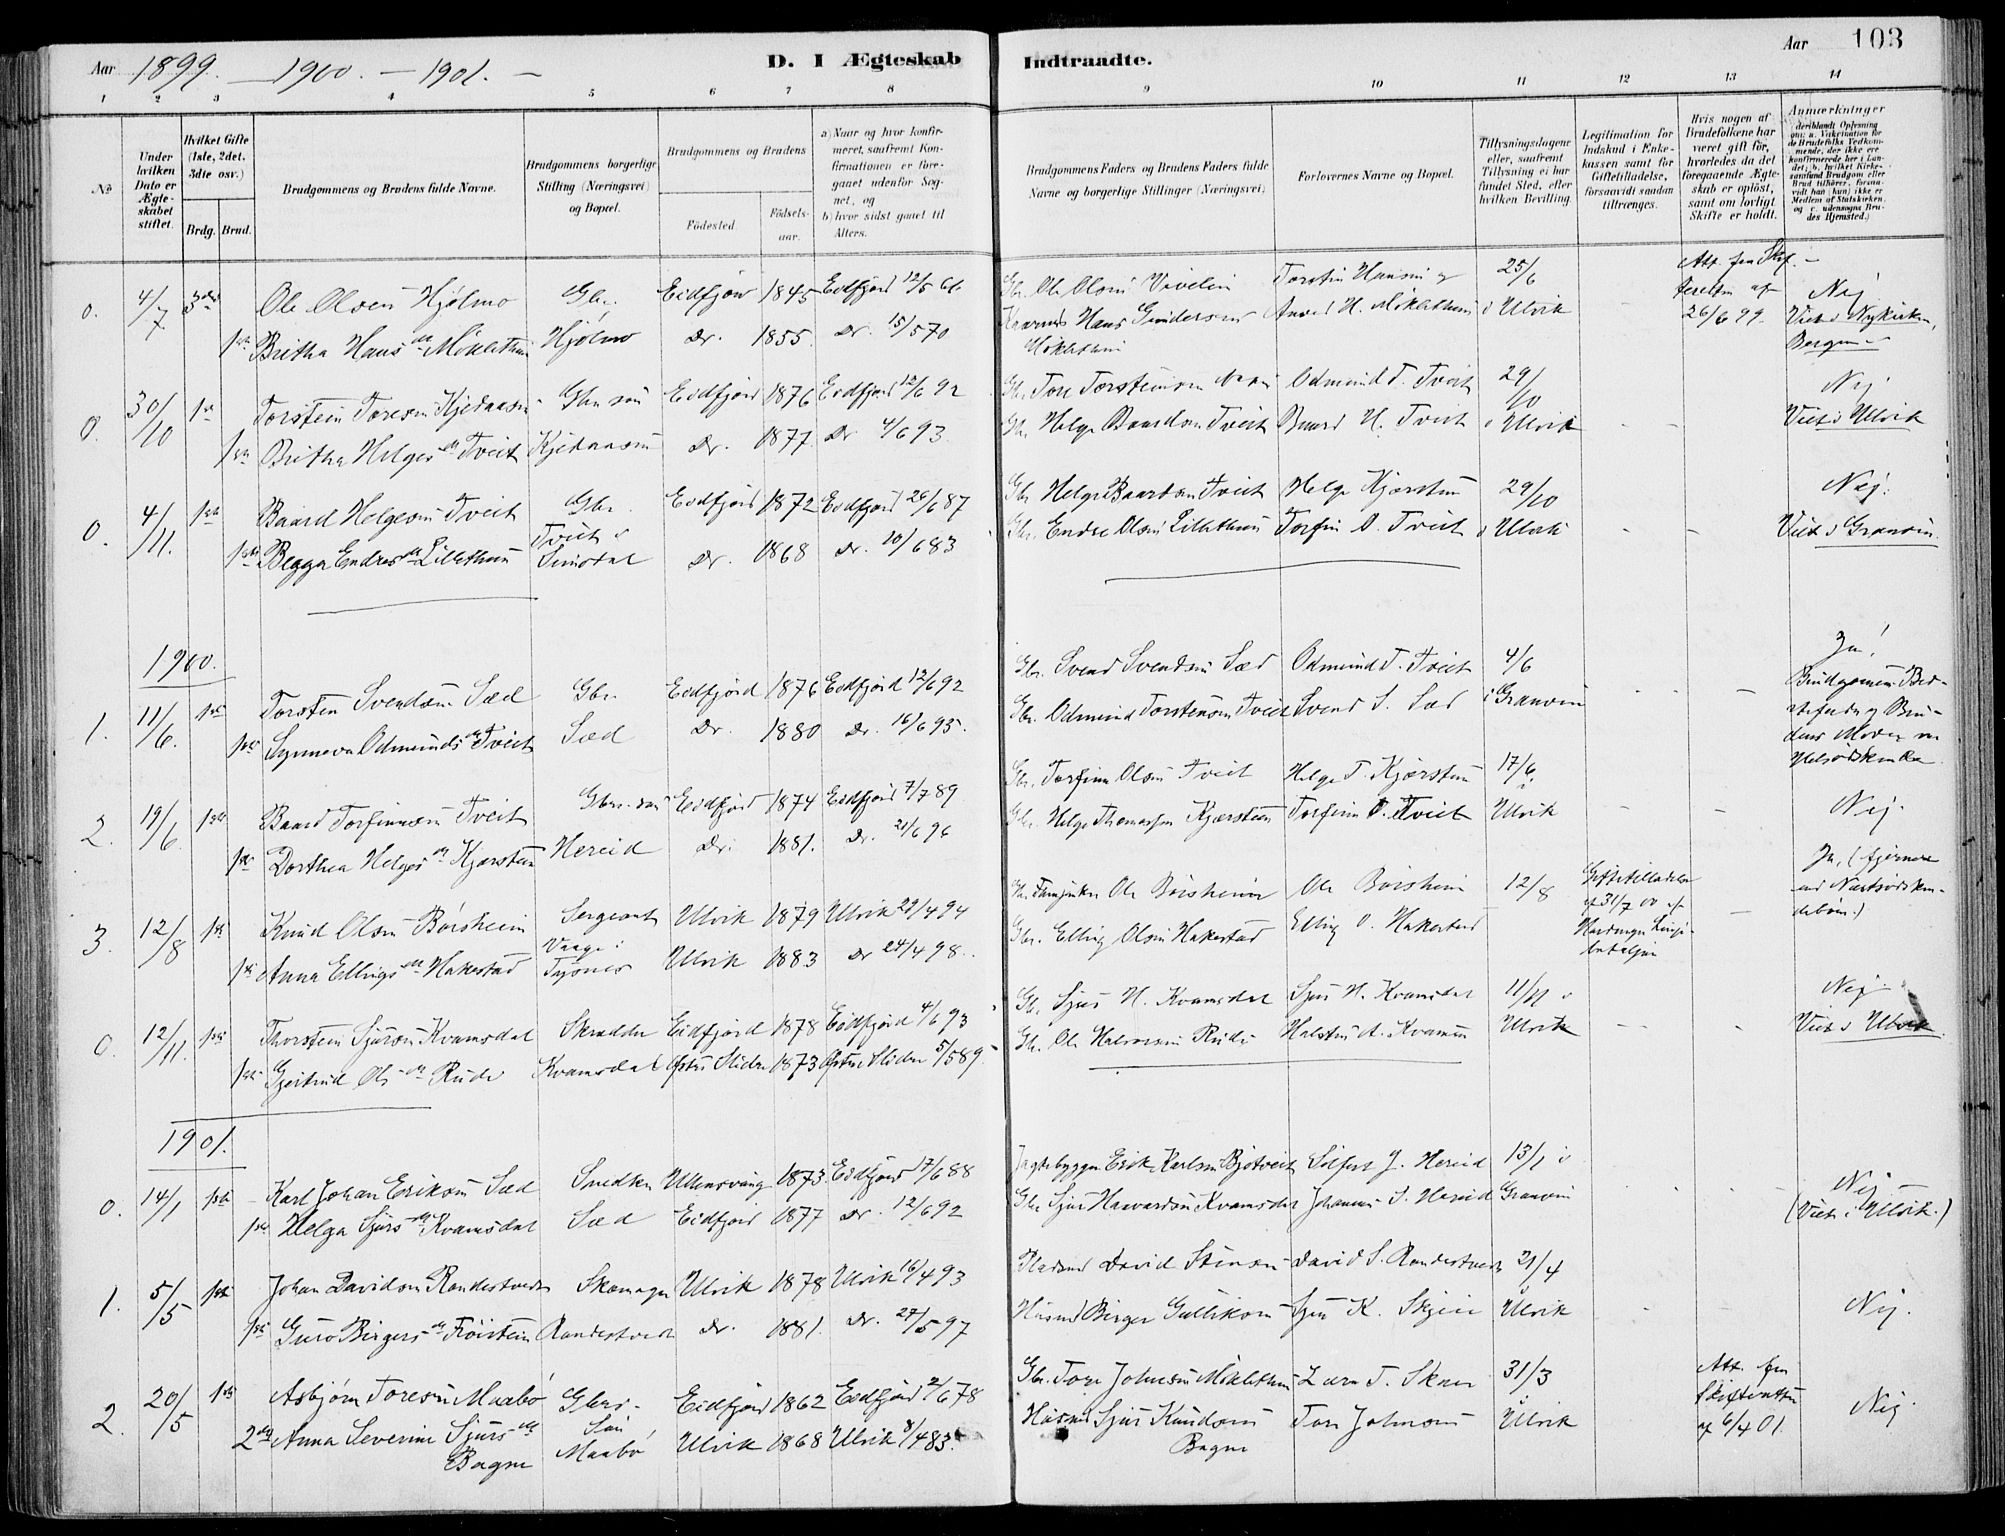 Aar 1899. — 1900. — 1901. —
D. I Ægteskab Indtraadte.
Aar 103
1 2 3 4 5 6 7 8 9 10 11 12 13 14
No
Under hvilken Dato er Ægteskabet stiftet.
Hvilket Gifte (1ste, 2det, 3die osv.)
Brdg. Brud.
Brudgommens og Brudens fulde Navne.
Brudgommens borgerlige Stilling (Næringsvei) og Bopæl.
Brudgommens og Brudens
Fødested.
Fødselsaar.
a) Naar og hvor konfirmeret, saafremt Konfirmationen er foregaaet udenfor Sognet, og
b) hvor sidst gaaet til Alters.
Brudgommens Faders og Brudens Faders fulde Navne og borgerlige Stillinger (Næringsvei)
Forlovernes Navne og Bopæl.
Tillysningsdagene eller, saafremt Tillysning ei har fundet Sted, efter hvilken Bevilling.
Legitimation for Indskud i Enkekassen samt for Giftetilladelse, forsaavidt saadan tiltrænges.
Hvis nogen af Brudefolkene har været gift før, hvorledes da det foregaaende Ægteskab er opløst, samt om lovligt Skifte er holdt.
Anmærkninger (deriblandt Oplysning om: a. Vakcination for de Brudefolks Vedkommende, der ikke ere konfirmerede her i Landet; b. hvilket Kirkesamfund Brudgom eller Brud tilhører, forsaavidt han (hun) ikke er Medlem af Statskirken, og c. udensogns Brudes Hjemsted.)
0. 4/7 3die Ole Olsen Hjølmo Gbr. Eidfjord 1845 Eidfjord 12/5 61 Gbr. Ole Olsen Vivelin Torstein Hansen og 25/6 Att. fra Skf.
1ste Britha Hansda. Miklethun Hjølmo Do. 1855. Do. 15/5 70 Haarmd Hans Gundersen Miklethun Anved H. Miklethun i Ulvik 26/6 99. Nej Viet i Nykirken, Bergen
0. 30/10 1ste Torstein Toresen Kjedaasen Gbr. søn Eidfjord 1876 Eidfjord 12/6 92 Gbr. Tore Torsteinsen Odmund T. Tveit 29/10 Nej
1ste Britha Helgesda. Tveit Kjedaasen Do. 1877 Do. 4/6 93. Gbr. Helge Baardsen Tveit Baard H. Tveit i Ulvik - - Viet i Ulvik
0. 4/11. 1ste Baard Helgesen Tveit Gbr. Eidfjord 1872 Eidfjord 26/6 87 Gbr. Helge Baardsen Tveit Helge Kjærstein 29/10 Nej.
1ste Begga Endresda. Lillethun Tveit i Simodal Do. 1868 Do. 10/6 83 Gbr. Endre Olsen Lillethun Torfin O. Tveit i Ulvik - - Viet i Granvin
1900.
1. 11/6. 1ste Torstein Svendsen Sæd Gbr. Eidfjord 1876 Eidfjord 12/6 92 Gbr. Svend Svendsen Sæd Odmund T. Tveit 4/6 Ja!
1ste Synneva Odmundsda. Tveit Sæd Do. 1880 Do. 16/6 95. Gbr. Odmund Torsteinsen Tveit Svend S. Sæd i Granvin - - Brudgommens Bedstefader og Brudens Moder
2. 19/6. 1ste Baard Torfinnsen Tveit Gbr. søn Eidfjord 1874 Eidfjord 7/7 89 Gbr. Torfinn Olsen Tveit Helge T. Kjærstein 17/6. i
1ste Dorthea Helgesda. Kjærstein Hereid Do. 1881. Do. 21/6 96 Gbr. Helge Thomassen Kjærstein Torfinn O. Tveit Ulvik - - Nej.
3. 12/8 1ste Knud Olsen Børsheim Sergeant Ulvik 1879 Ulvik 29/4 94 Ole Børsheim Ole Børsheim 12/8 Giftetilladelse af 31/7 00 Ja, (fjernere end Næstsødskendebørn.)
1ste Anna Ellingsda. Hakestad Vaage i Tysnes Ulvik 1883 Do. 24/4 98. Gbr. Elling Olsen Hakestad Elling O. Hakestad Hardanger bataljon
0. 12/11. 1ste Thorstein Sjursen Kvamsdal Skrædder Eidfjord 1878 Eidfjord 4/6 93 Gbr. Sjur H. Kvamsdal Sjur H. Kvamsdal 11/11 i Nej.
1ste Gjertrud Olsda. Rude Kvamsdal Østre Slidre 1873 Østre Slidre 5/5 89. Gbr. Ole Halvorsen Rude Halstein A. Kvamen Ulvik - - Viet i Ulvik.
1901.
0. 14/1 1ste Karl Johan Eriksen Sæd Snedker Ullensvang 1873. Eidfjord 17/6 88 Jagtebygger Erik Karlsen Bjotveit Sjifert J. Hereid 13/1 i Nej
1ste Helga Sjursda. Kvamsdal Sæd Eidfjord 1877 Do. 12/6 92 Gbr Sjur Haavardsen Kvamsdal Johannes S. Hereid Granvin (Viet i Ulvik.)
1. 5/5 1ste Johan Davidsen Randestveit Skomager Ulvik 1878 Ulvik 16/4 93 Pladsmd David Steinsen David S. Randestveit 21/4
1ste Guro Birgersda. Frøistein Randestveit Do. 1881. Do. 27/5 97 Husmd Birger Gulliksen Sjur K. Skjeie Ulvik Nej.
2. 20/5 1ste Asbjørn Toresen Maabø Gbr. Eidfjord 1862 Eidfjord 2/6 78 Gbr. Tore Johnsen Miklethun Lars T. Skaar 31/3 Att. fra Skifteretten af 6/4 01 Nej
2det Anna Severine Sjursda. Bagne Søn Maabø Ulvik 1868 Ulvik 8/4 83. Husmd Sjur Knudsen Bagne Tore Johnsen Ulvik